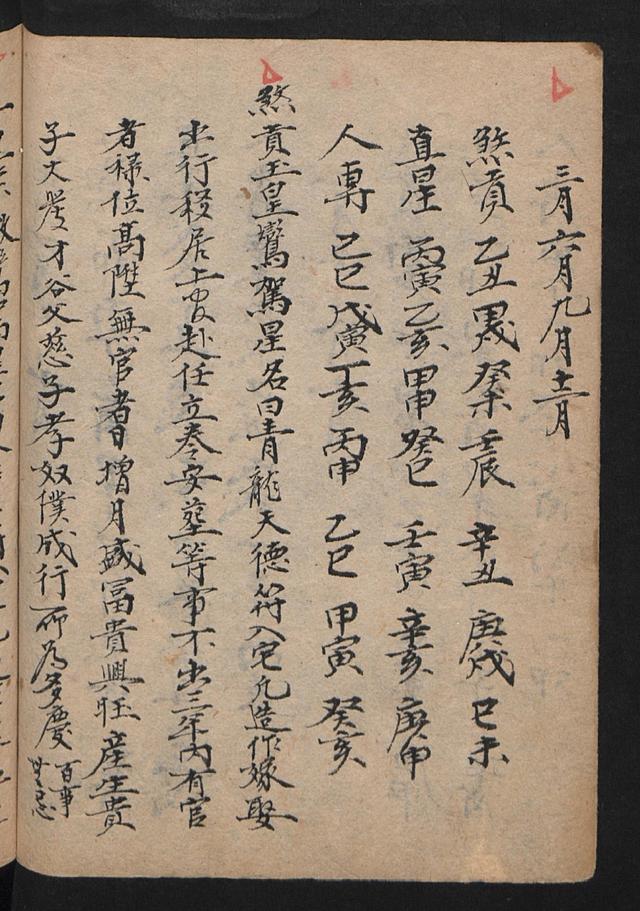 三月六月九月十二月
煞貢 乙丑 甲戌 癸未 壬辰 辛丑 庚戌 己未
直星 丙寅 乙亥 甲申 癸巳 壬寅 辛亥 庚申
人專 己巳 戊寅 丁亥 丙申 乙巳 甲寅 癸亥
煞貢玉皇鸞駕星名曰青龍天德符入宅凡造作嫁娶
出行移居上官赴任立券安塟等事不出三年內有官
者祿位髙陞無官者日增月盛冨貴興旺產生貴
子大發才谷父慈子孝奴僕成行所為多慶百事
無忌